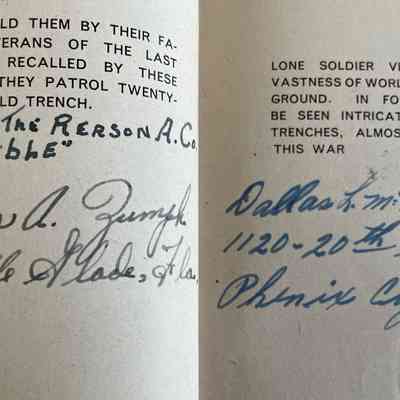 LD THEM BY THEIR FA-
TERANS OF THE LAST
RECALLED BY THESE
THEY PATROL TWENTY-
LD TRENCH.
THE RERSON A. Co.
BLE"
A. Zumph
Glade, Fla.
LONE SOLDIER VI
VASTNESS OF WORL
GROUND. IN FO
BE SEEN INTRICAT
TRENCHES, ALMOS
THIS WAR
Dallas L. M
1120-20th
Phenix Cy